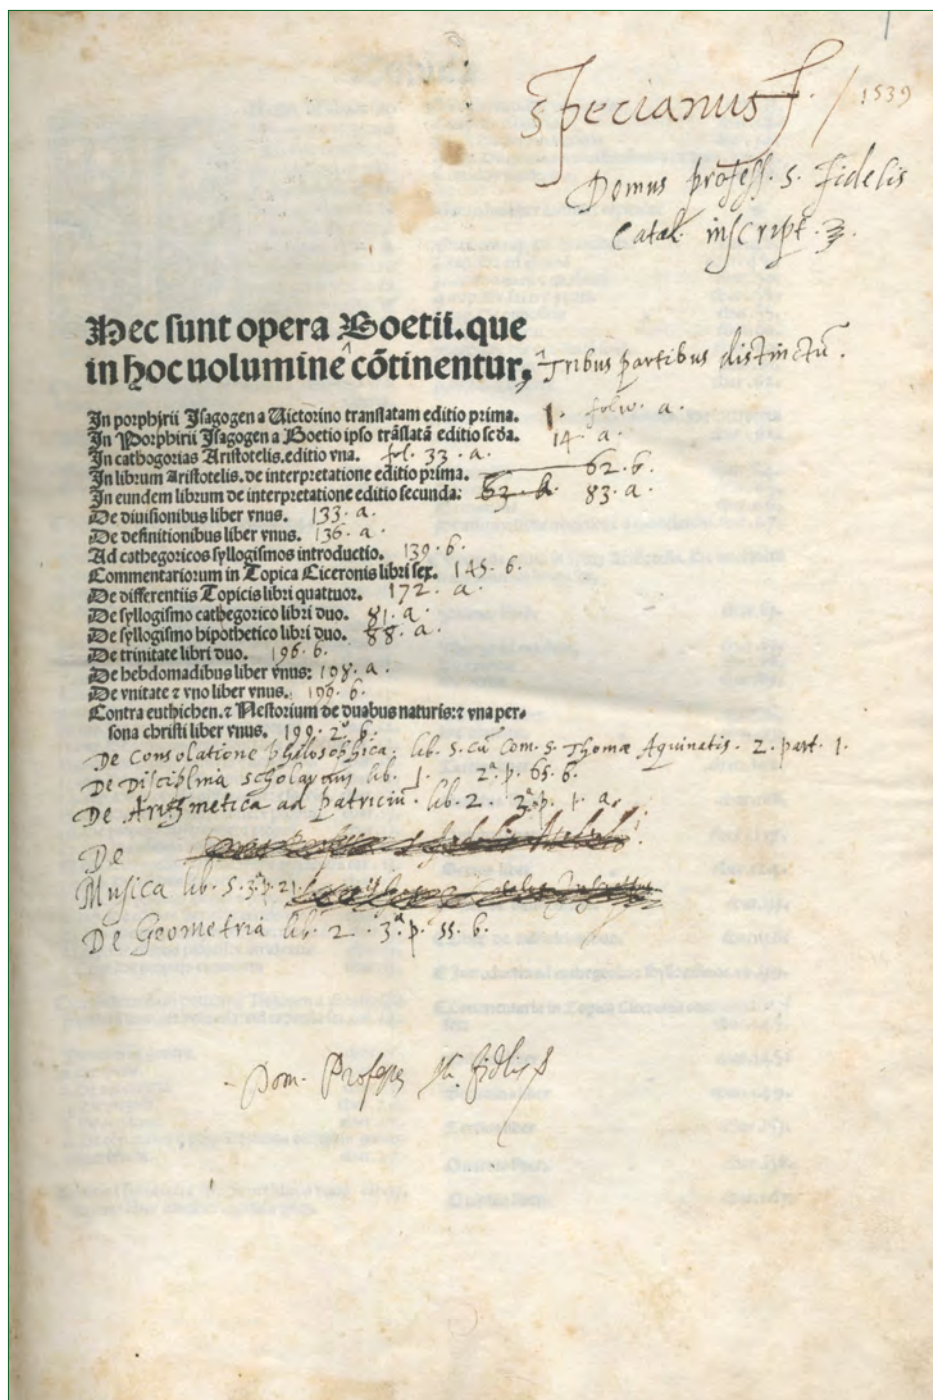 specianus f. / 1539
Domus profess. s. fidelis
Catal. inscript. 3.
Hec sunt opera Boetii. que
in hoc uolumine cõtinentur, Tribus partibus distinctũ.
In porphirii Isagogen a Uictorino translatam editio prima. 1. folio. a.
In Porphirii Isagogen a Boetio ipso trãslatã editio scđa. 14. a.
In cathogorias Aristotelis. editio vna. fol. 33. a.
In librum Aristotelis. de interpretatione editio prima. 62. b.
In eundem librum de interpretatione editio secunda: 83. a.
De diuisionibus liber vnus. 133. a.
De definitionibus liber vnus. 136. a.
Ad cathegoricos syllogismos introductio. 139. b.
Commentariorum in Topica Ciceronis libri sex. 145. b.
De differentiis Topicis libri quattuor. 172. a.
De syllogismo cathegorico libri duo. 81. a.
De syllogismo hipothetico libri duo. 88. a.
De trinitate libri duo. 196. b.
De hebdomadibus liber vnus: 198. a.
De vnitate ⁊ vno liber vnus. 199. b.
Contra euthichen. ⁊ Nestorium de duabus naturis: ⁊ vna per-
sona christi liber vnus. 199. 2ª. b.
De Consolatione philosophica. lib. 5. cũ com. s. Thomæ Aquinatis. 2. part. 1.
De Disciplina scholarium lib. 1. 2ª. p. 65. b.
De Arithmetica ad patriciũ. lib. 2. 3ª. p. 1. a.
De
Musica lib. 5. 3ª. p. 21.
De Geometria lib. 2. 3ª. p. 55. b.
Dom. Profess. Sti. fidlis